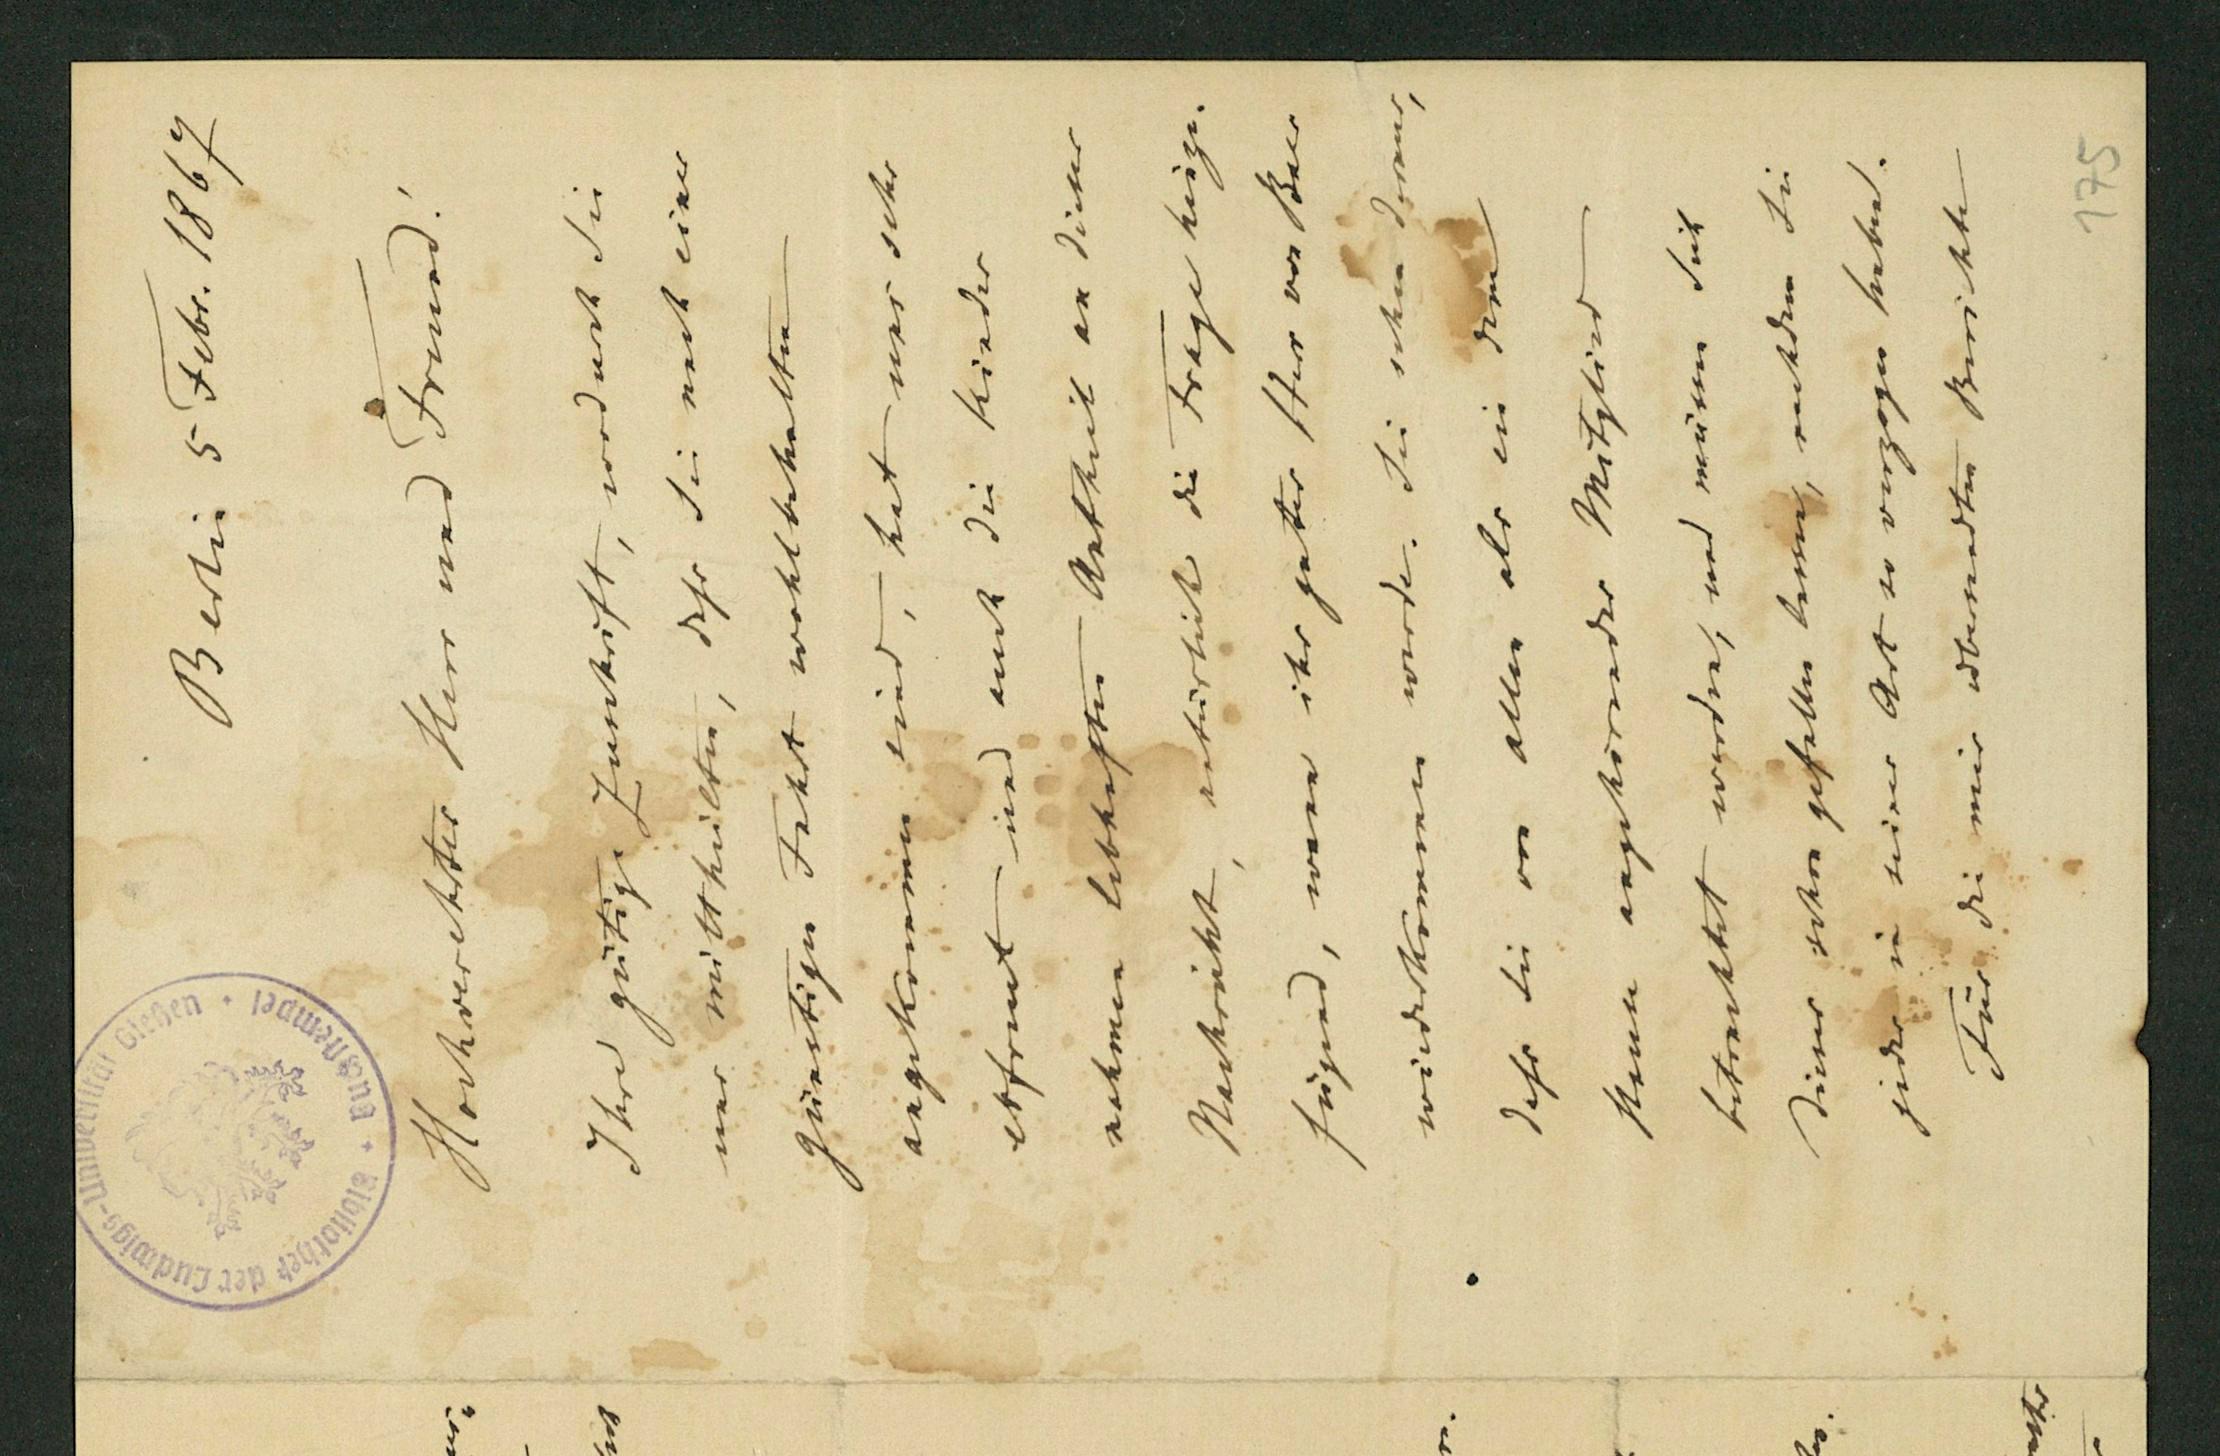 Berlin 5 Febr. 1867
Hochverehrter Herr und Freund!
Ihre gütige Zuschrift, wodurch Sie
uns mittheilten, dass Sie nach einer
günstigen Fahrt wohlbehalten
angekommen sind, hat uns sehr
erfreut und auch die Kinder
nehmen lebhaften Antheil an dieser
Nachricht, natürlich die Frage hinzu
fügend, wann ihr guter Herr von Baer
wiederkommen werde. Sie sehen daraus,
dass Sie von allen als ein dem
Hause angehörendes Mitglied
betrachtet werden, und müssen sich
dieses schon gefallen lassen, nachdem Sie
jeden in seiner Art so verzogen haben.
Für die mir übersandten Berichte
175
Bibliothek der Ludwigs-Universität Gießen · Handschriften